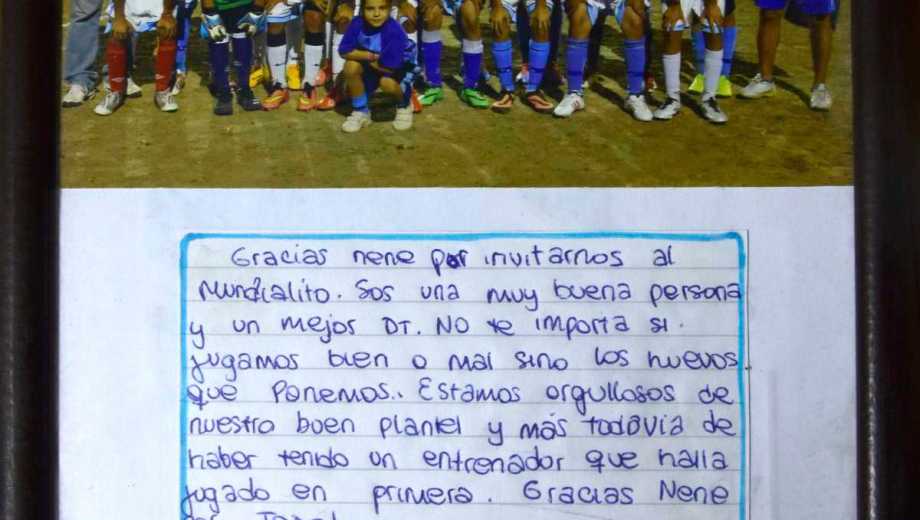 Gracias nene por invitarnos al
Mundialito. Sos una muy buena persona
y un mejos DT. NO te importa si.
jugamos bien o mal sino los huevos
que Ponemos.. Estamos orgullosos de
nuestro buen plantel y más todavia de
haber tenido un entrenador que halla
jugado en primera. Gracias Nene